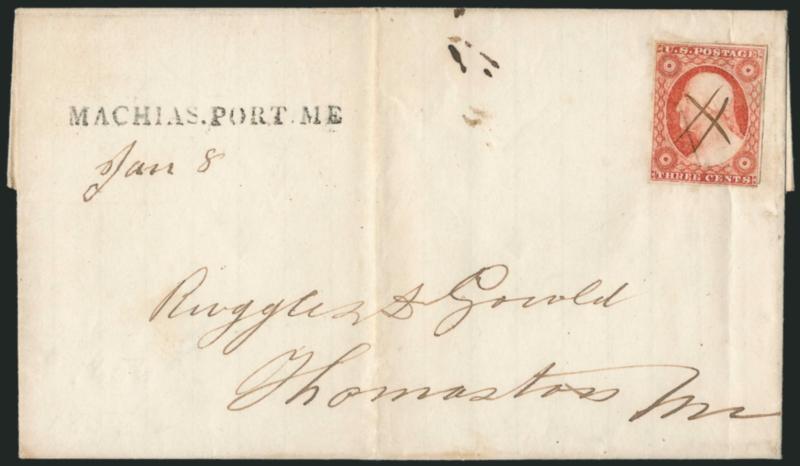 U.S. POSTAGE
THREE CENTS
MACHIAS.PORT.ME
Jan 8
Ruggles & Gould
Thomaston Me